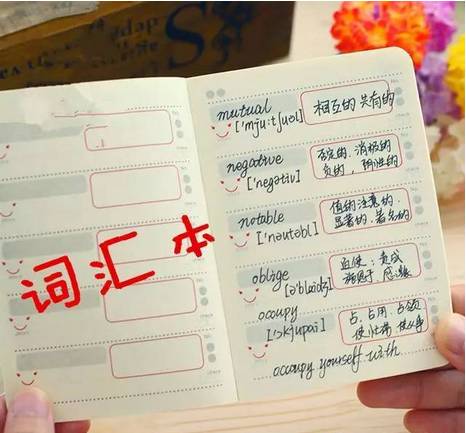 词汇本
mutual
['mju:tʃuəl]
相互的 共有的
negative
['negətiv]
否定的、消极的
负的，阴性的
notable
['nəutəbl]
值的注意的
显著的、著名的
oblige
[ə'blaidʒ]
迫使；责成
occupy
['ɔkjupai]
占、占用、占领
occupy yourself with